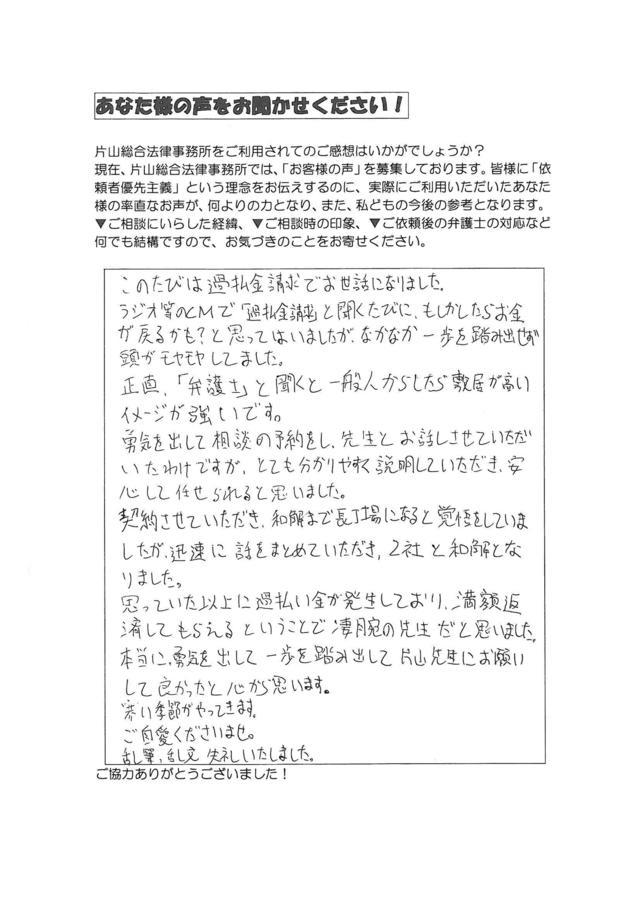 あなた様の声をお聞かせください！
片山総合法律事務所をご利用されてのご感想はいかがでしょうか？
現在、片山総合法律事務所では、「お客様の声」を募集しております。皆様に「依
頼者優先主義」という理念をお伝えするのに、実際にご利用いただいたあなた
様の率直なお声が、何よりの力となり、また、私どもの今後の参考となります。
▼ご相談にいらした経緯、▼ご相談時の印象、▼ご依頼後の弁護士の対応など
何でも結構ですので、お気づきのことをお寄せください。
このたびは過払金請求でお世話になりました。
ラジオ等のCMで「過払金請求」と聞くたびに、もしかしたらお金
が戻るかも？と思ってはいましたが、なかなか一歩を踏み出せず
頭がモヤモヤしてました。
正直、「弁護士」と聞くと一般人からしたら敷居が高い
イメージが強いです。
勇気を出して相談の予約をし、先生とお話しさせていただ
いたわけですが、とても分かりやすく説明していただき、安
心して任せられると思いました。
契約させていただき、和解まで長丁場になると覚悟をしていま
したが、迅速に話をまとめていただき、2社と和解とな
りました。
思っていた以上に過払い金が発生しており、満額返
済してもらえるということで凄腕の先生だと思いました。
本当に、勇気を出して一歩を踏み出して片山先生にお願い
して良かったと心から思います。
寒い季節がやってきます。
ご自愛くださいませ。
乱筆、乱文失礼いたしました。
ご協力ありがとうございました！